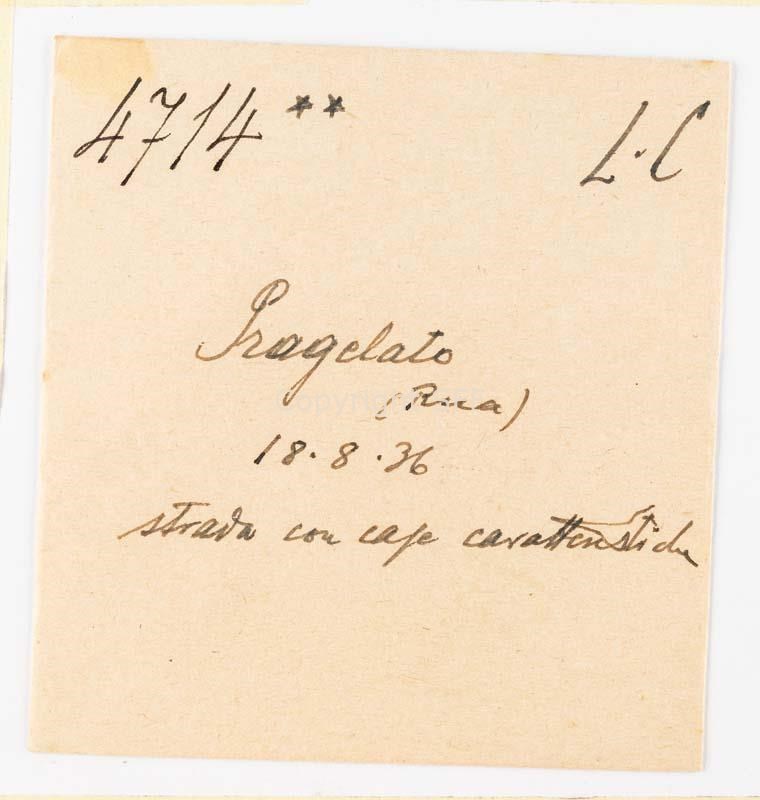 4714 ** L.C
Pragelato
(Rua)
18.8.36
strada con case caratteristiche